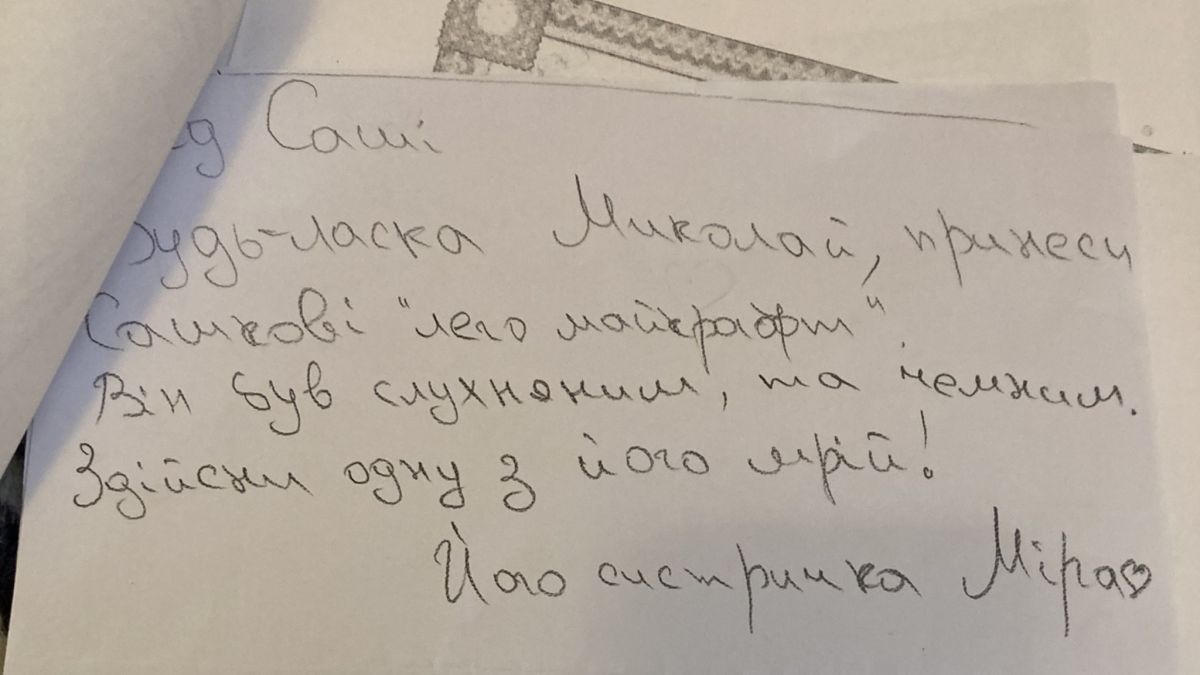 ід Саші
Будь-ласка Миколай, принеси
Сашкові "лего майкрафт"
Він був слухняним, та чемним.
Здійсни одну з його мрій!
Його систричка Міра♡